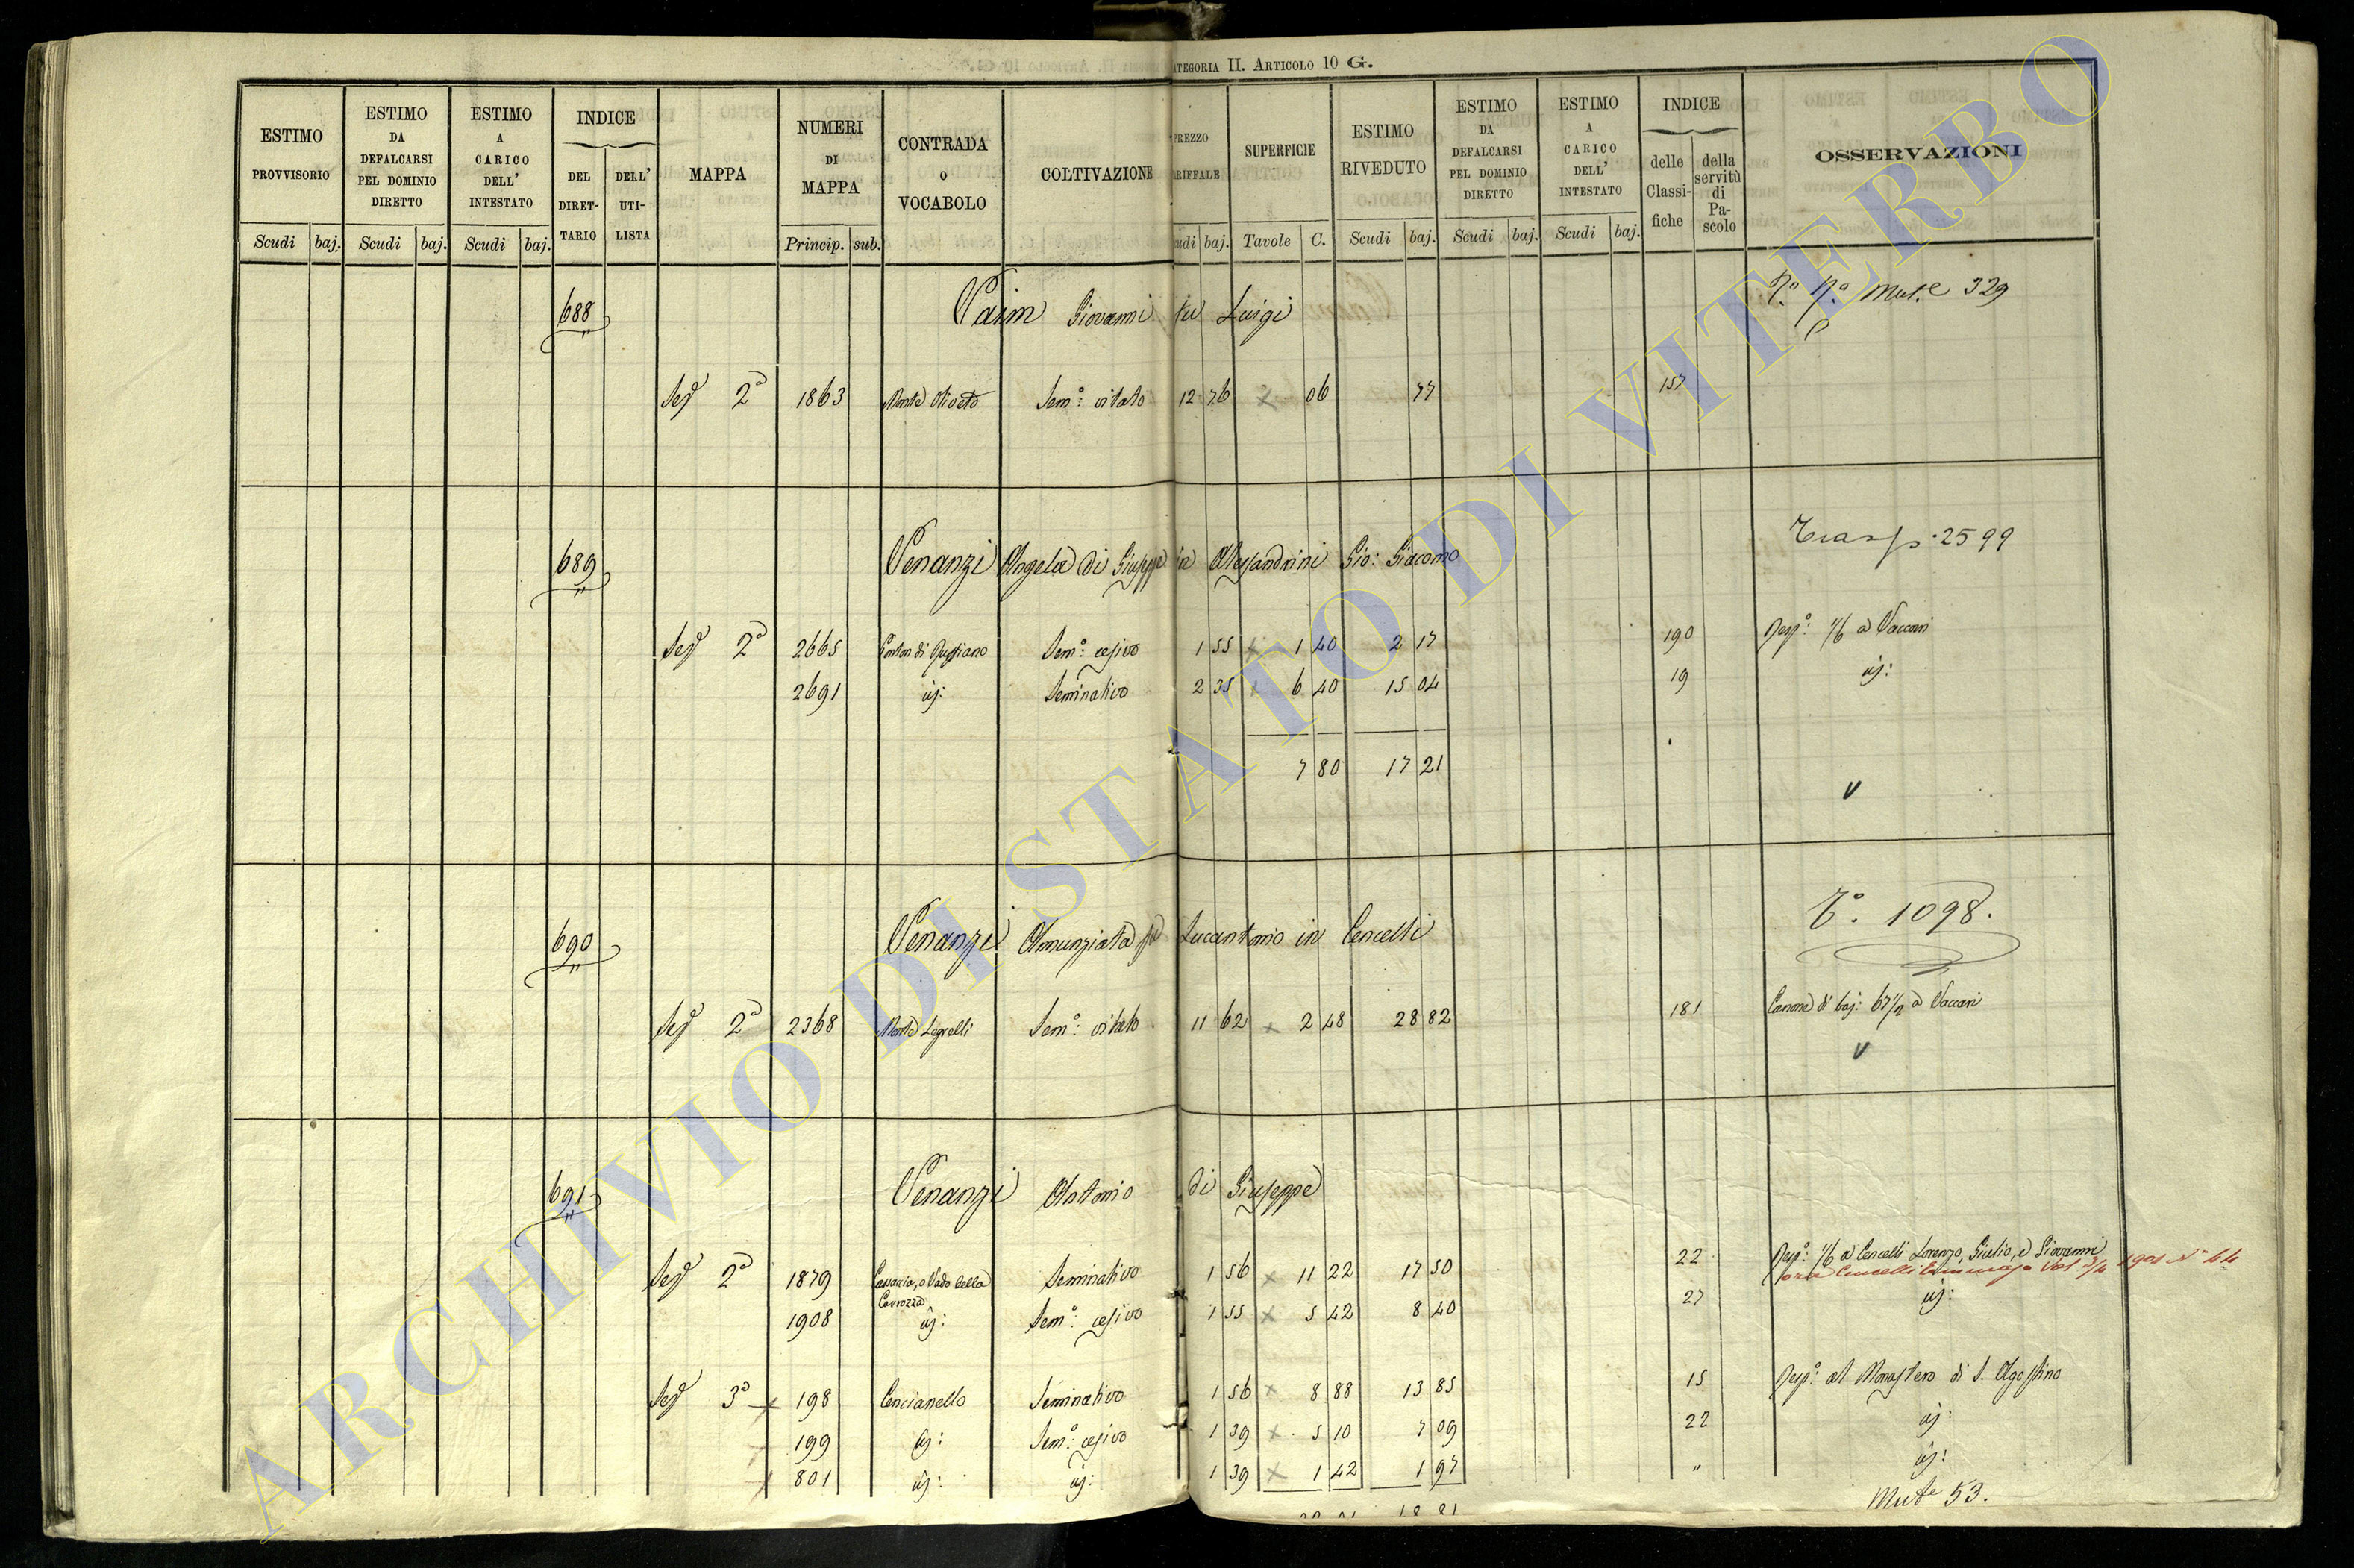 CATEGORIA II. ARTICOLO 10 G.
ESTIMO PROVVISORIO
ESTIMO DA DEFALCARSI PEL DOMINIO DIRETTO
ESTIMO A CARICO DELL' INTESTATO
INDICE
DEL DIRETTARIO
DELL' UTILISTA
MAPPA
NUMERI DI MAPPA
CONTRADA O VOCABOLO
COLTIVAZIONE
PREZZO TARIFFALE
SUPERFICIE
ESTIMO RIVEDUTO
ESTIMO DA DEFALCARSI PEL DOMINIO DIRETTO
ESTIMO A CARICO DELL' INTESTATO
INDICE
delle Classifiche
della servitù di Pascolo
OSSERVAZIONI
Scudi baj. Scudi baj. Scudi baj. Princip. sub. Scudi baj. Tavole C. Scudi baj. Scudi baj. Scudi baj.
688 Vaim Giovanni fu Luigi Mut.e 329
Sez 2a 1863 Monte Oliveto Sem.o vitato 12 76 06 77 157
689 Venanzi Angela di Giuseppe in Alessandrini Gio: Giacomo Trasp. 2599
Sez 2a 2665 Sem.o cesivo 1 55 1 40 2 17 190 Resp.o 1/6 a Vaccari
2691 id: Seminativo 2 35 6 40 15 04 19 id:
7 80 17 21
V
690 Venanzi Annunziata fu Lucantonio in Cencelli T.o 1098.
Sez 2a 2368 Monte Legrelli Sem.o vitato 11 62 2 48 28 82 181 Canone di baj: 67 1/2 a Vaccari
V
691 Venanzi Antonio di Giuseppe
Sez 2a 1879 o Vado della Carrozza Seminativo 1 56 11 22 17 50 22 Resp.o 1/6 a Cencelli Lorenzo, Giulio, e Giovanni
ora Cencelli 1901 N.o 44
1908 id: Sem.o cesivo 1 55 5 42 8 40 27 id:
Sez 3a 198 Cencianello Seminativo 1 56 8 88 13 85 15 Resp.o al Monastero di S. Agostino
199 id: Sem.o cesivo 1 39 5 10 7 09 22 id:
801 id: id: 1 39 1 42 1 97 " id:
Mut.e 53.
ARCHIVIO DI STATO DI VITERBO